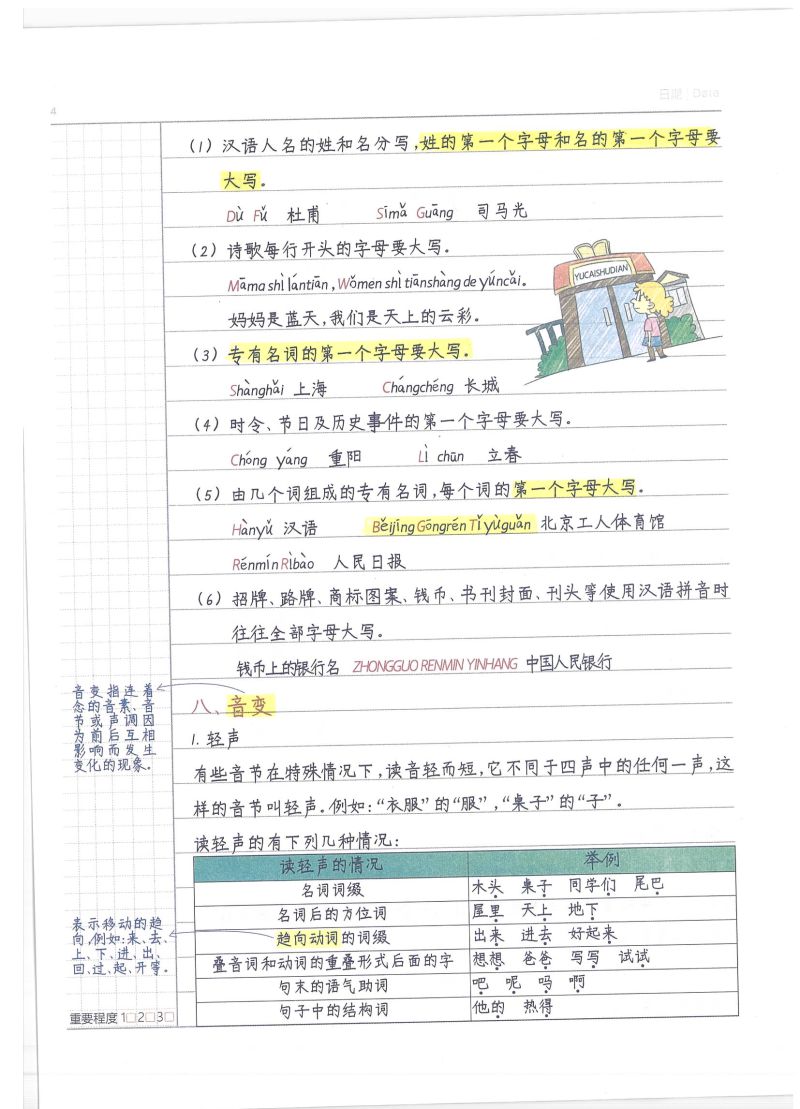 4
日期 Data
(1) 汉语人名的姓和名分写,姓的第一个字母和名的第一个字母要
大写.
Dù Fǔ 杜甫 Sīmǎ Guāng 司马光
(2) 诗歌每行开头的字母要大写.
Māma shì lántiān, Wǒmen shì tiānshàng de yúncǎi.
妈妈是蓝天,我们是天上的云彩.
YUCAISHUDIAN
(3) 专有名词的第一个字母要大写.
Shànghǎi 上海 Chángchéng 长城
(4) 时令、节日及历史事件的第一个字母要大写.
Chóng yáng 重阳 Lì chūn 立春
(5) 由几个词组成的专有名词,每个词的第一个字母大写.
Hànyǔ 汉语 Běijīng Gōngrén Tǐyùguǎn 北京工人体育馆
Rénmín Rìbào 人民日报
(6) 招牌、路牌、商标图案、钱币、书刊封面、刊头等使用汉语拼音时
往往全部字母大写.
钱币上的银行名 ZHONGGUO RENMIN YINHANG 中国人民银行
八、音变
音变指连着
念的音素、音
节或声调因
为前后互相
影响而发生
变化的现象。
1. 轻声
有些音节在特殊情况下,读音轻而短,它不同于四声中的任何一声,这
样的音节叫轻声.例如:“衣服”的“服”,“桌子”的“子”.
读轻声的有下列几种情况:
读轻声的情况 举例
名词词缀 木头 桌子 同学们 尾巴
名词后的方位词 屋里 天上 地下
趋向动词的词缀 出来 进去 好起来
叠音词和动词的重叠形式后面的字 想想 爸爸 写写 试试
句末的语气助词 吧 呢 吗 啊
句子中的结构词 他的 热得
表示移动的趋
向,例如:来、去、
上、下、进、出、
回、过、起、开等。
重要程度 1□2□3□